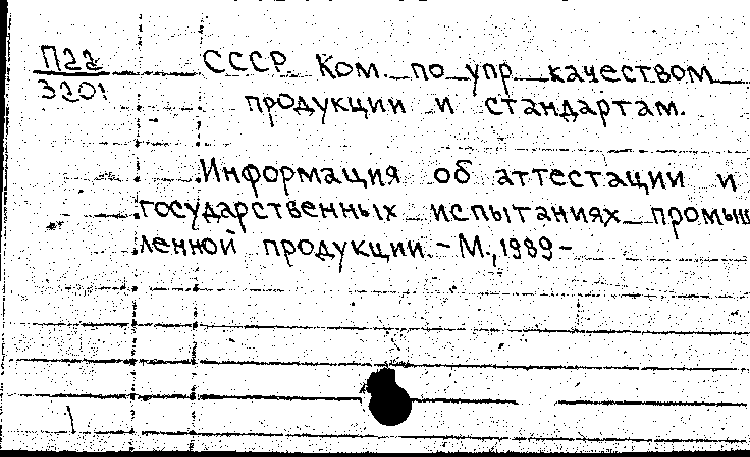 П22
3201
СССР. Ком. по упр. качеством
продукции и стандартам.
Информация об аттестации и
государственных испытаниях промыш
ленной продукции. – М., 1989 –